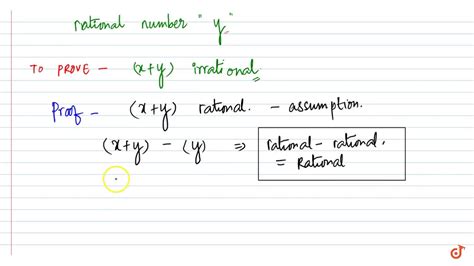 rational number "y"
TO PROVE - (x+y) irrational.
Proof - (x+y) rational. - assumption.
(x+y) - (y) ⇒ rational - rational.
= Rational